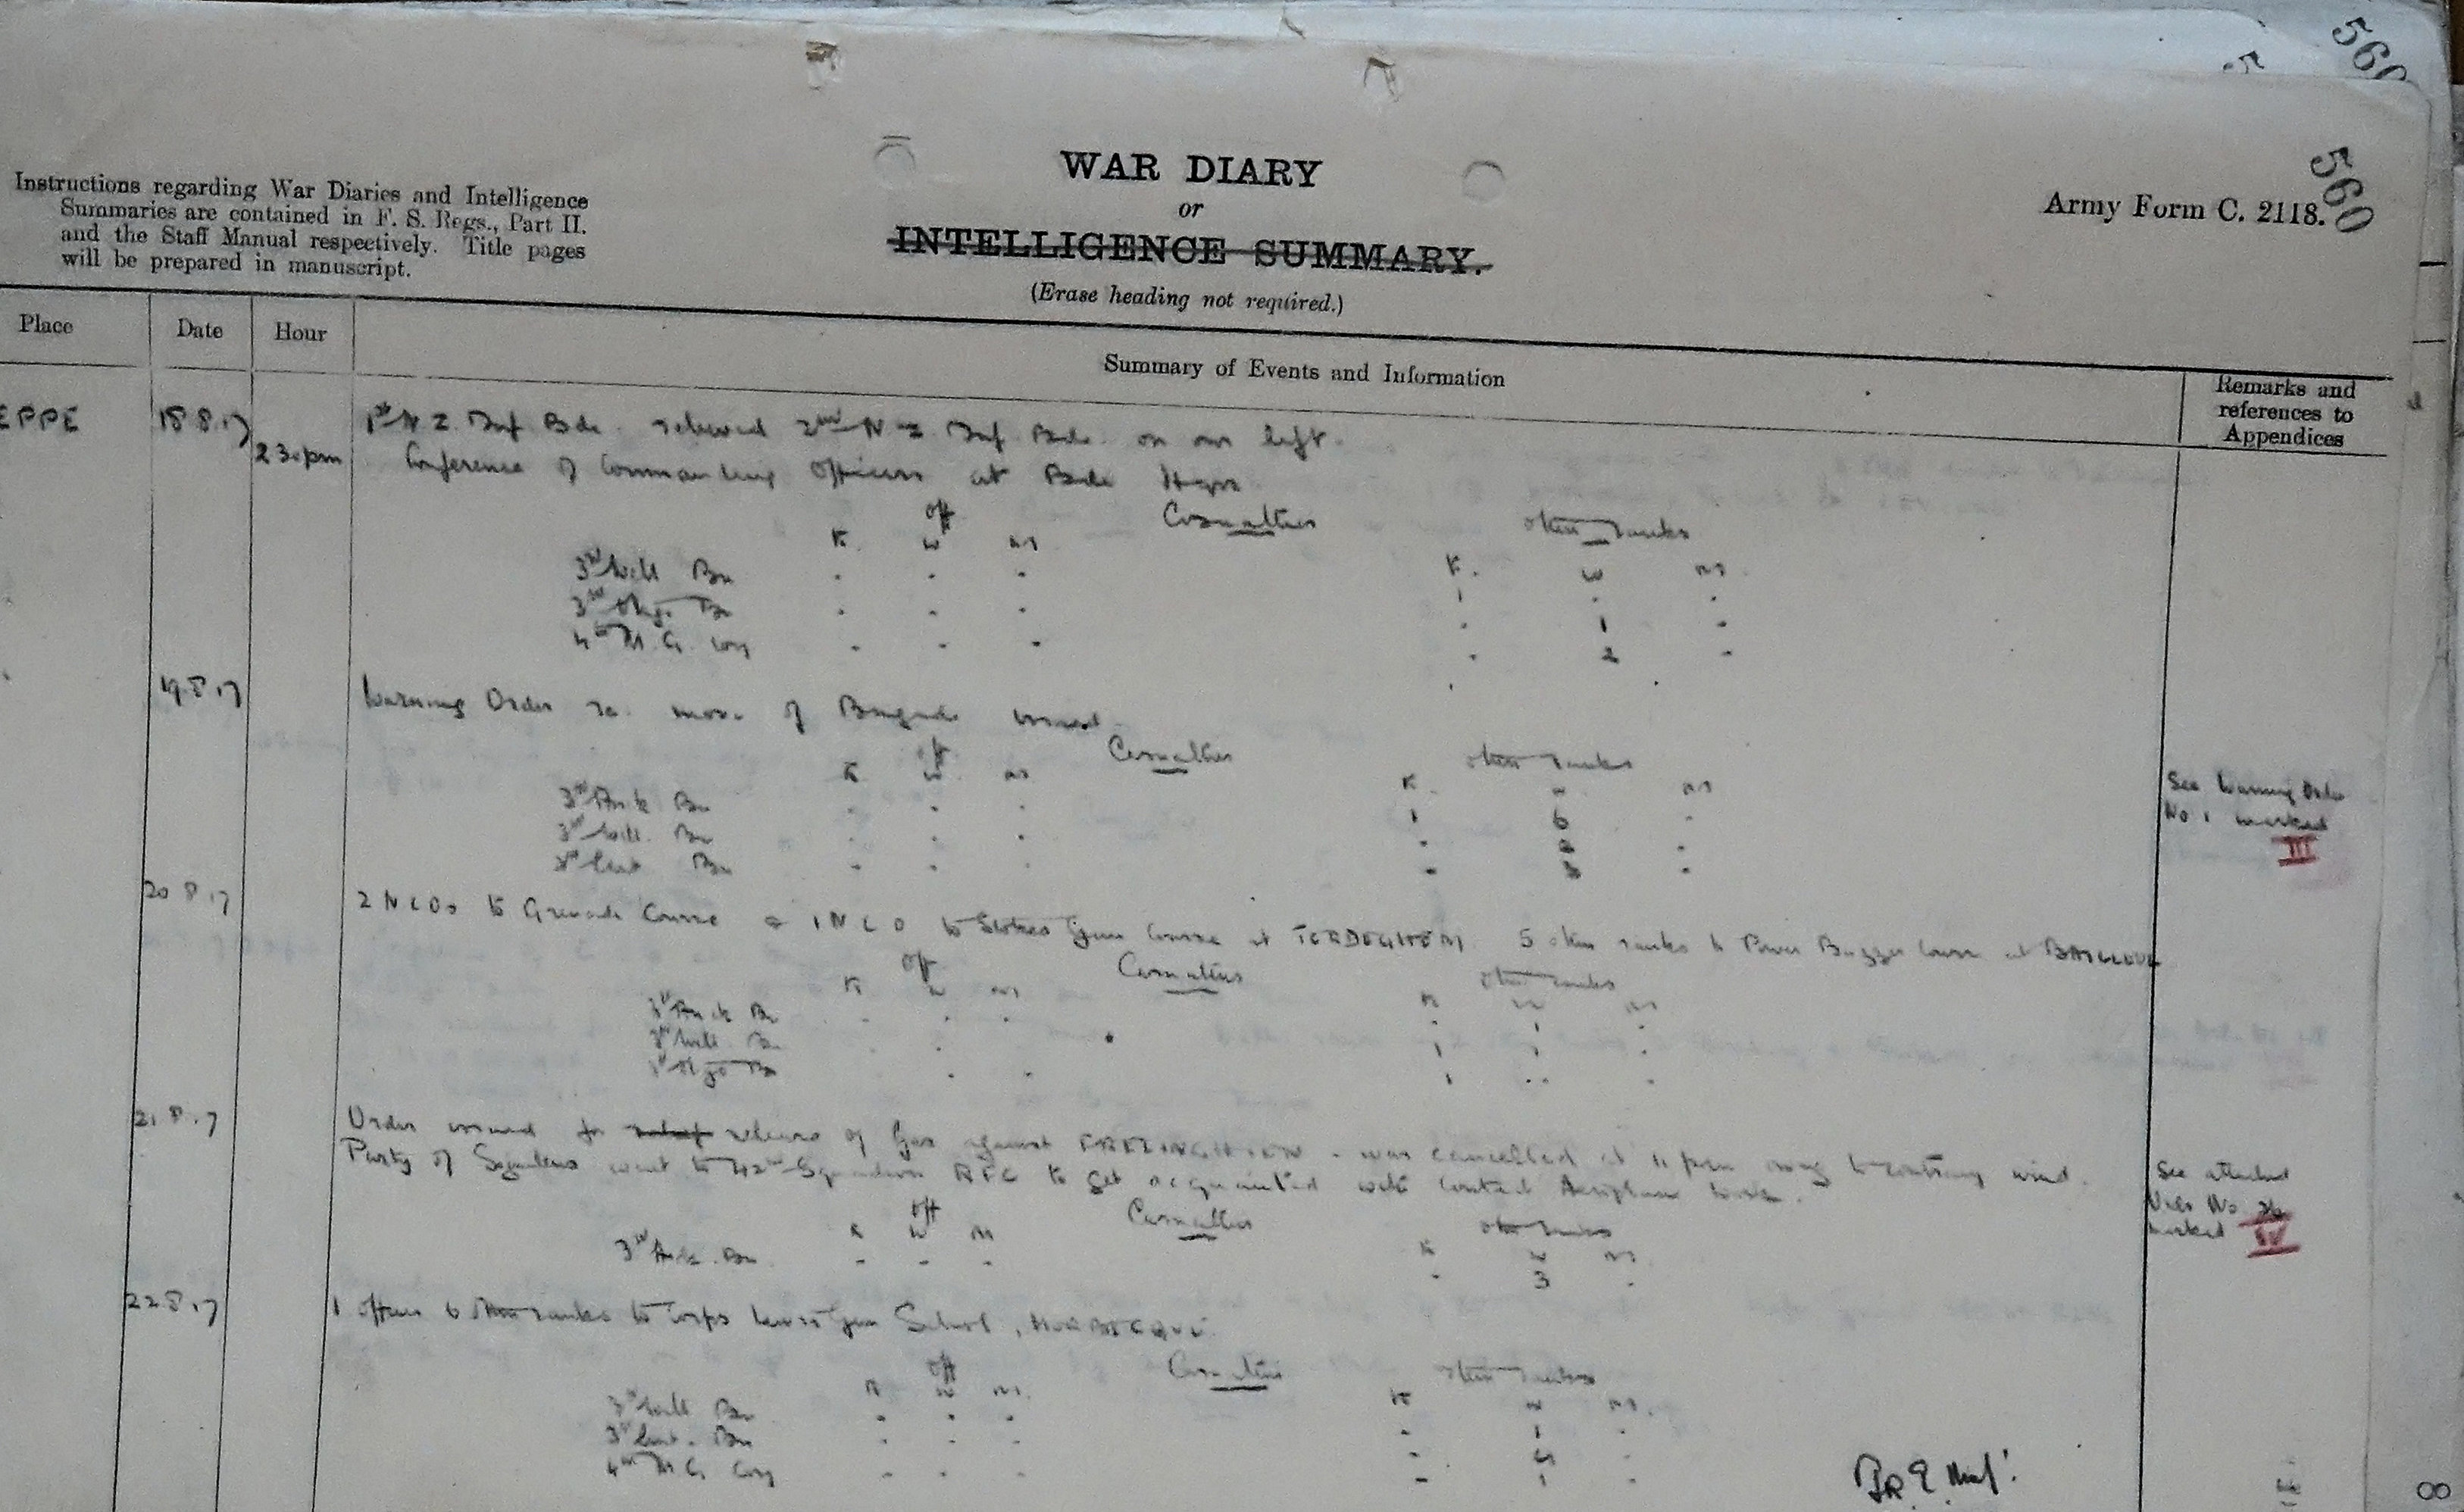 560
560
WAR DIARY
or
INTELLIGENCE SUMMARY.
(Erase heading not required.)
Instructions regarding War Diaries and Intelligence
Summaries are contained in F. S. Regs., Part II.
and the Staff Manual respectively. Title pages
will be prepared in manuscript.
Army Form C. 2118.
Place Date Hour Summary of Events and Information Remarks and
references to
Appendices
EPPE 18 8.17 1st N Z Inf Bde. relieved 2nd N Z Inf Bde. on our left.
2 30 pm Conference of Commanding Officers at Bde Hqrs
Off Casualties Other ranks
K. W M K. W M
3rd Well Bn - - - 1 - -
3rd Otago Bn - - - - 1 -
4th M.G. Coy - - - - 2 -
19.8.17 Warning Order re. move of Brigade issued
Casualties
Off Other ranks
K W M K W M
3rd Auck Bn - - - 1 6 -
3rd Well. Bn - - - -
3rd Cant Bn - - - - 3 -
See Warning Order
No 1 marked
III
20 8.17 2 NCOs to Grenade Course & 1 NCO to Stokes Gun Course at TERDEGHEM. 5 other ranks to Power Buzzer Course at
Off Casualties Other ranks
K W M K W M
3rd Auck Bn - - - - 1 -
3rd Well. Bn 1 1 -
3rd Otago Bn - - 1 - -
21.8.17 Order issued for relief release of Gas against FRELINGHIEN - was cancelled at 11 pm owing to contrary wind.
Party of Signallers went to 42nd Squadron RFC to get acquainted with Contact Aeroplane work.
See attached
Order No
marked IV
Off Casualties Other ranks
K W M K W M
3rd Auck. Bn - - - - 3 -
22 8.17 1 officer 6 other ranks to Corps Lewis Gun School, MORBECQUE.
Off Casualties Other ranks
K W M. K W M.
3rd Well Bn - - - - 1 -
3rd Cant. Bn - - - - 4 -
4th M G Coy - - - - 1 -